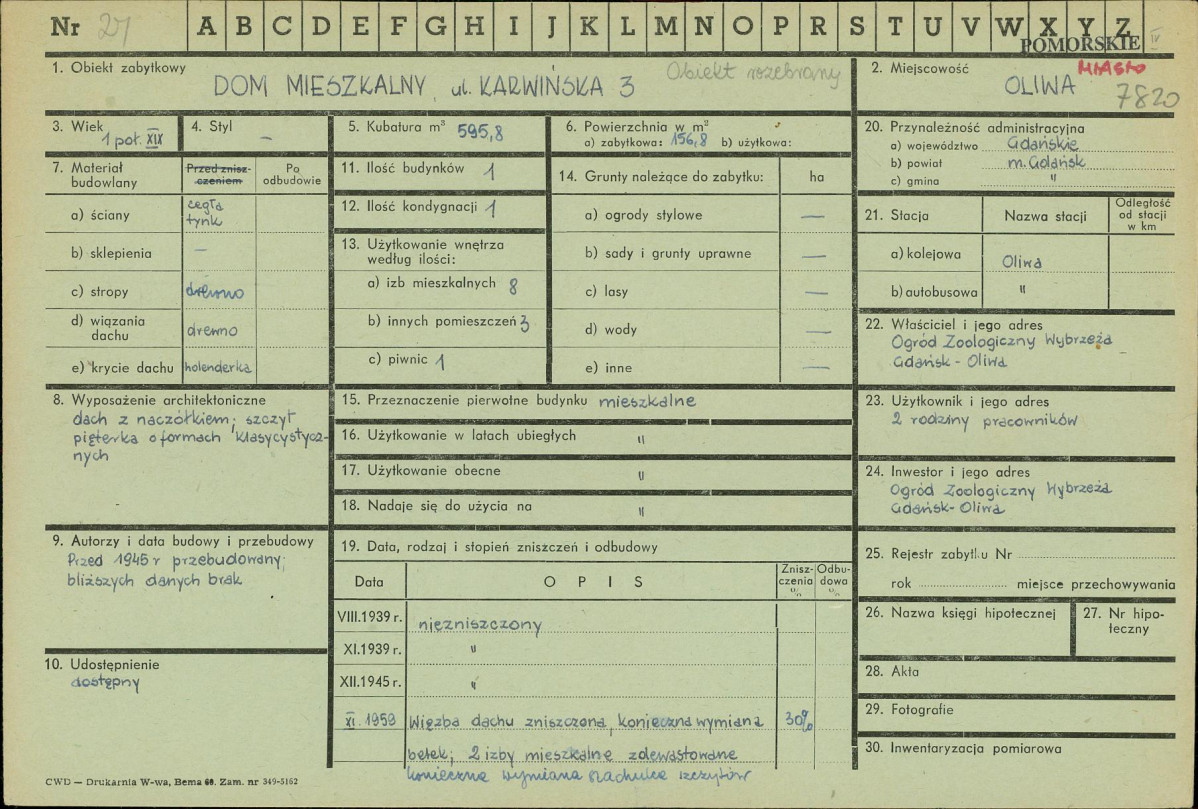 Nr 27 A B C D E F G H I J K L M N O P R S T U V W X Y Z
POMORSKIE IV
1. Obiekt zabytkowy
DOM MIESZKALNY, ul. KARWIŃSKA 3
Obiekt rozebrany
2. Miejscowość
MIASTO
OLIWA
7820
3. Wiek
1 poł. XIX
4. Styl
—
5. Kubatura m³ 595,8
6. Powierzchnia w m²
a) zabytkowa: 156,8 b) użytkowa:
20. Przynależność administracyjna
a) województwo Gdańskie
b) powiat m. Gdańsk
c) gmina "
7. Materiał budowlany
Przed znisz-
czeniem
Po
odbudowie
a) ściany cegła
tynk
b) sklepienia —
c) stropy drewno
d) wiązania
dachu drewno
e) krycie dachu holenderka
11. Ilość budynków 1
12. Ilość kondygnacji 1
13. Użytkowanie wnętrza
według ilości:
a) izb mieszkalnych 8
b) innych pomieszczeń 3
c) piwnic 1
14. Grunty należące do zabytku: ha
a) ogrody stylowe —
b) sady i grunty uprawne —
c) lasy —
d) wody —
e) inne —
21. Stacja Nazwa stacji Odległość
od stacji
w km
a) kolejowa Oliwa
b) autobusowa "
22. Właściciel i jego adres
Ogród Zoologiczny Wybrzeża
Gdańsk - Oliwa
8. Wyposażenie architektoniczne
dach z naczółkiem; szczyt
pięterka o formach klasycystycz-
nych
15. Przeznaczenie pierwotne budynku mieszkalne
16. Użytkowanie w latach ubiegłych "
17. Użytkowanie obecne "
18. Nadaje się do użycia na "
23. Użytkownik i jego adres
2 rodziny pracowników
24. Inwestor i jego adres
Ogród Zoologiczny Wybrzeża
Gdańsk - Oliwa
9. Autorzy i data budowy i przebudowy
Przed 1945 r przebudowany;
bliższych danych brak
10. Udostępnienie
dostępny
19. Data, rodzaj i stopień zniszczeń i odbudowy
Data OPIS Znisz-
czenia
% Odbu-
dowa
%
VIII.1939 r. niezniszczony
XI.1939 r. "
XII.1945 r. "
XI. 1959 Więźba dachu zniszczona, konieczna wymiana 30%
belek; 2 izby mieszkalne zdewastowane
konieczna wymiana szachulca szczytów
25. Rejestr zabytku Nr
rok miejsce przechowywania
26. Nazwa księgi hipotecznej
27. Nr hipo-
teczny
28. Akta
29. Fotografie
30. Inwentaryzacja pomiarowa
CWD — Drukarnia W-wa, Bema 60. Zam. nr 349-5162